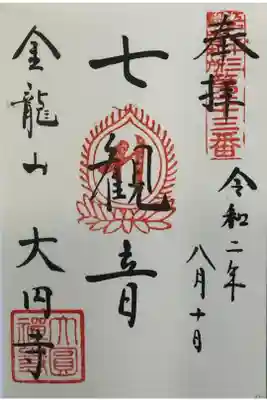 奉拝
令和二年
八月十日
七観音
金龍山 大円寺
大圓禅寺